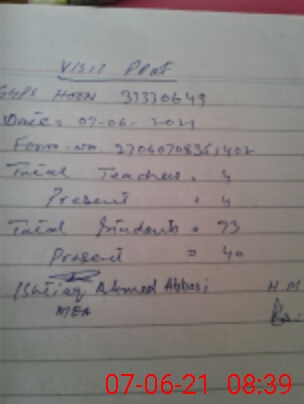 VISIT PROF
GGPS HOTN 37330649
Date = 07-06, 2021
Form. no.
Total Teachers . 4
Present . 4
Total Students = 73
Present = 40
Ishtiaq Ahmed Abbasi H.M
MEA
07-06-21 08:39